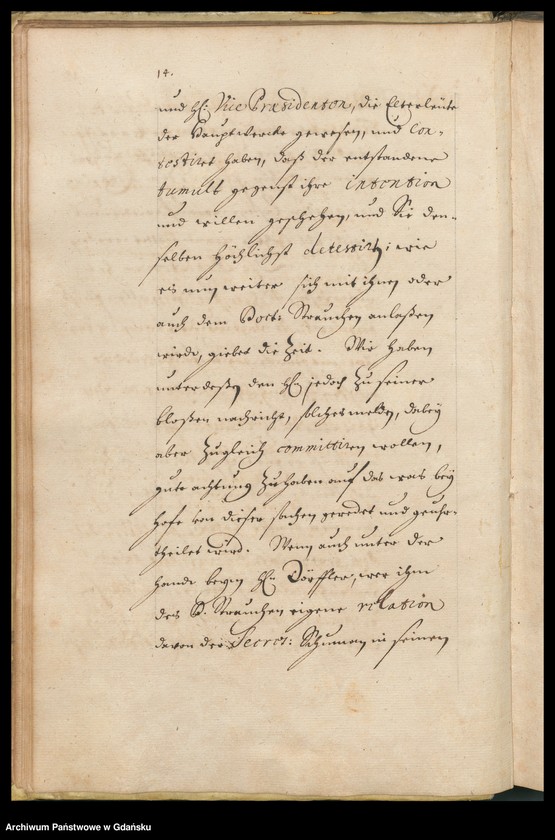 14.
und H. Vice Præsidenten, die Elterleüte
der Hauptwercke gewesen, und Con-
testiret haben, daß der entstandene
tumult gegenst ihre intention
und willen geschehen, und Sie den-
selben höchlichst detestirt; wie
es nun weiter sich mit ihnen oder
auch dem Doct: Strauchen anlaßen
wirdt, giebet die Zeit. Wir haben
unterdeßen den H. jedoch zu seiner
bloßen nachricht, solches melden, dabey
aber zugleich committiren wollen,
gute achtung zu haben auf das was bey
Hofe von dieser sachen geredet und geuhr-
theilet wird. Wenn auch unter der
hand beym H. Dörffler, wer ihm
des D. Strauchen eigene relation
davon der Secret: Schuman in seinem
Archiwum Państwowe w Gdańsku